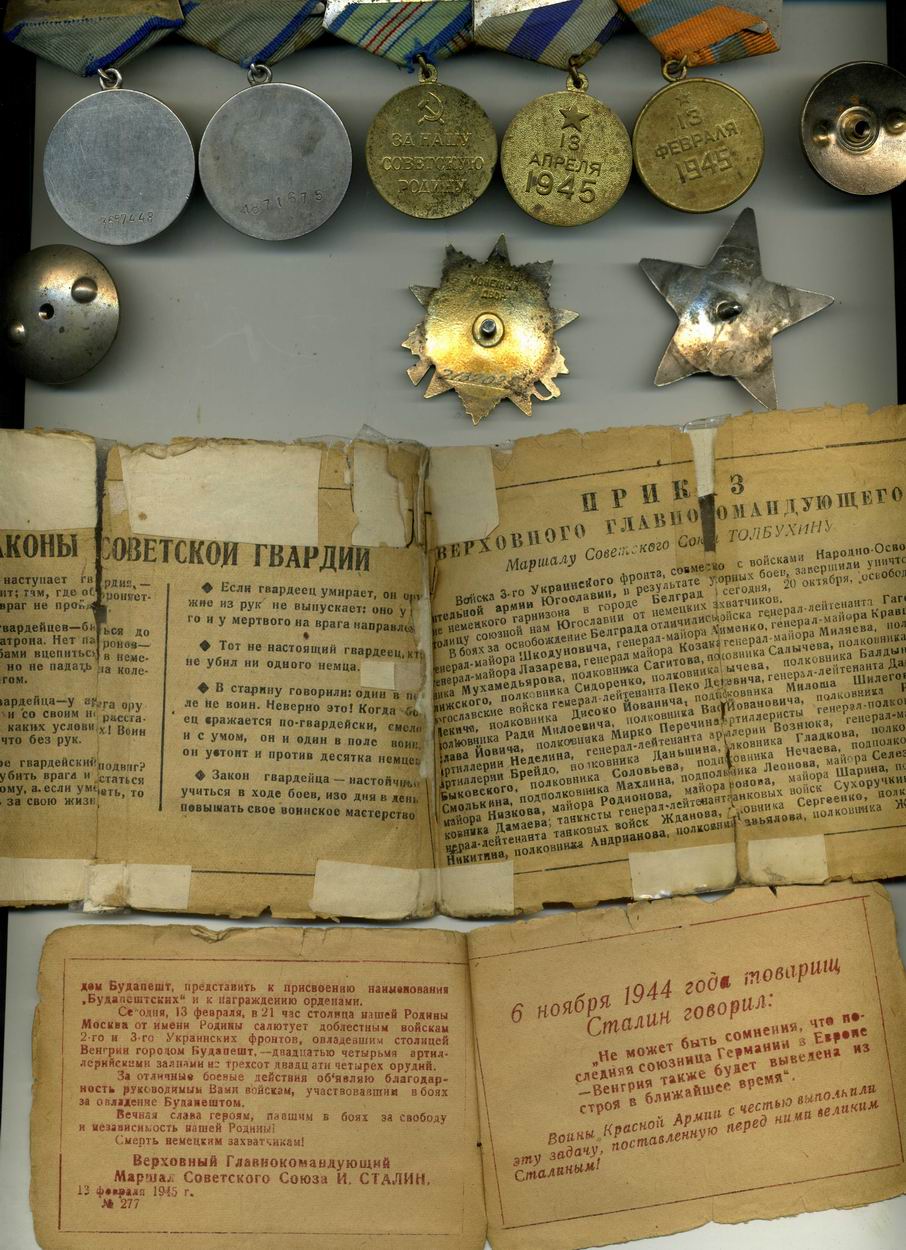 3697448
1671675
ЗА НАШУ
СОВЕТСКУЮ
РОДИНУ
13
АПРЕЛЯ
1945
13
ФЕВРАЛЯ
1945
МОНЕТНЫЙ
ДВОР
АКОНЫ СОВЕТСКОЙ ГВАРДИИ
наступает гвардия,—
враг не
вардейцев—
патрона. Нет
бами вцепиться в неме-
но не падать на коле-
гом.
вардейца—у врага ору
и со своим не расста-
каких услови Воин
что без рук.
гвардейский подвиг?
убить врага и остаться
ому, а если умереть, то
за свою жизн
◆ Если гвардеец умирает, он ору
жие из рук не выпускает: оно у
го и у мертвого на врага направлено
◆ Тот не настоящий гвардеец, кто
не убил ни одного немца.
◆ В старину говорили: один в по
ле не воин. Неверно это! Когда бо
ец сражается по-гвардейски, смело
и с умом, он и один в поле воин,
он устоит и против десятка немцев
◆ Закон гвардейца — настойчиво
учиться в ходе боев, изо дня в день
повышать свое воинское мастерство
ПРИКАЗ
ВЕРХОВНОГО ГЛАВНОКОМАНДУЮЩЕГО
Маршалу Советского Союза ТОЛБУХИНУ
Войска 3-го Украинского фронта, совместно с войсками Народно-Осво
тельной армии Югославии, в результате упорных боев, завершили уничто
немецкого гарнизона в городе Белград и сегодня, 20 октября, освобод
толицу союзной нам Югославии от немецких захватчиков.
В боях за освобождение Белграда отличились войска генерал-лейтенанта Гаге
енерал-майора Шкодуновича, генерал-майора Айменко, генерал-майора Кравц
генерал-майора Лазарева, генерал майора Козака, генерал-майора Миляева, полк
ника Мухамедьярова, полковника Сагитова, полковника Салычева, полковника
нижского, полковника Сидоренко, полковника Балдын
гославские войска генерал-лейтенанта Пеко Дапчевича, генерал-лейтенанта Да
екича, полковника Дисоко Йованича, полковника Милоша Шилегов
полковника Ради Милоевича, полковника Йовановича, полковника
лава Йовича, полковника Мирко Перечина; артиллеристы генерал-полков
артиллерии Неделина, генерал-лейтенанта артиллерии Вознюка, генерал-ма
артиллерии Брейдо, полковника Даньшина, полковника Гладкова, полков
Быковского, полковника Соловьева, подполковника Нечаева, подполко
Смолькина, подполковника Махлина, подполковника Леонова, майора Селез
майора Низкова, майора Родионова, майора Шарина, по
ковника Дамаева; танкисты генерал-лейтенанта танковых войск Сухоручкин
нерал-лейтенанта танковых войск Жданова, полковника Сергеенко, полко
Никитина, полковника Андрианова, полковника Завьялова, полковника Ж
дом Будапешт, представить к присвоению наименования
„Будапештских“ и к награждению орденами.
Сегодня, 13 февраля, в 21 час столица нашей Родины
Москва от имени Родины салютует доблестным войскам
2-го и 3-го Украинских фронтов, овладевшим столицей
Венгрии городом Будапешт,—двадцатью четырьмя артил-
лерийскими залпами из трехсот двадцати четырех орудий.
За отличные боевые действия об‘являю благодар-
ность руководимым Вами войскам, участвовавшим в боях
за овладение Будапештом.
Вечная слава героям, павшим в боях за свободу
и независимость нашей Родины!
Смерть немецким захватчикам!
Верховный Главнокомандующий
Маршал Советского Союза И. СТАЛИН.
13 февраля 1945 г.
№ 277
6 ноября 1944 года товарищ
Сталин говорил:
„Не может быть сомнения, что по-
следняя союзница Германии в Европе
—Венгрия также будет выведена из
строя в ближайшее время“.
Воины Красной Армии с честью выполнили
эту задачу, поставленную перед ними великим
Сталиным!